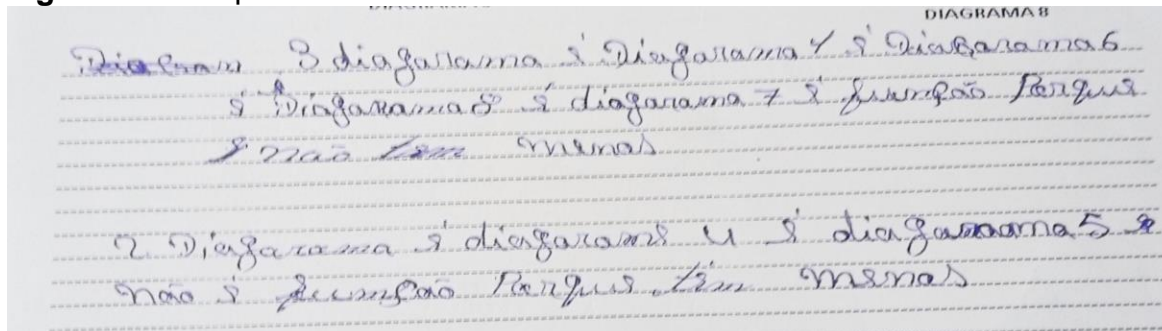 DIAGRAMA 8
3 diagarama é Diagarama 4 é Diagarama 6
é Diagarama 8 é diagarama 7 é funpão Porque
não tem menas
2 Diagarama é diagarama é diagaraama 5
não é funpão Porque tem menas